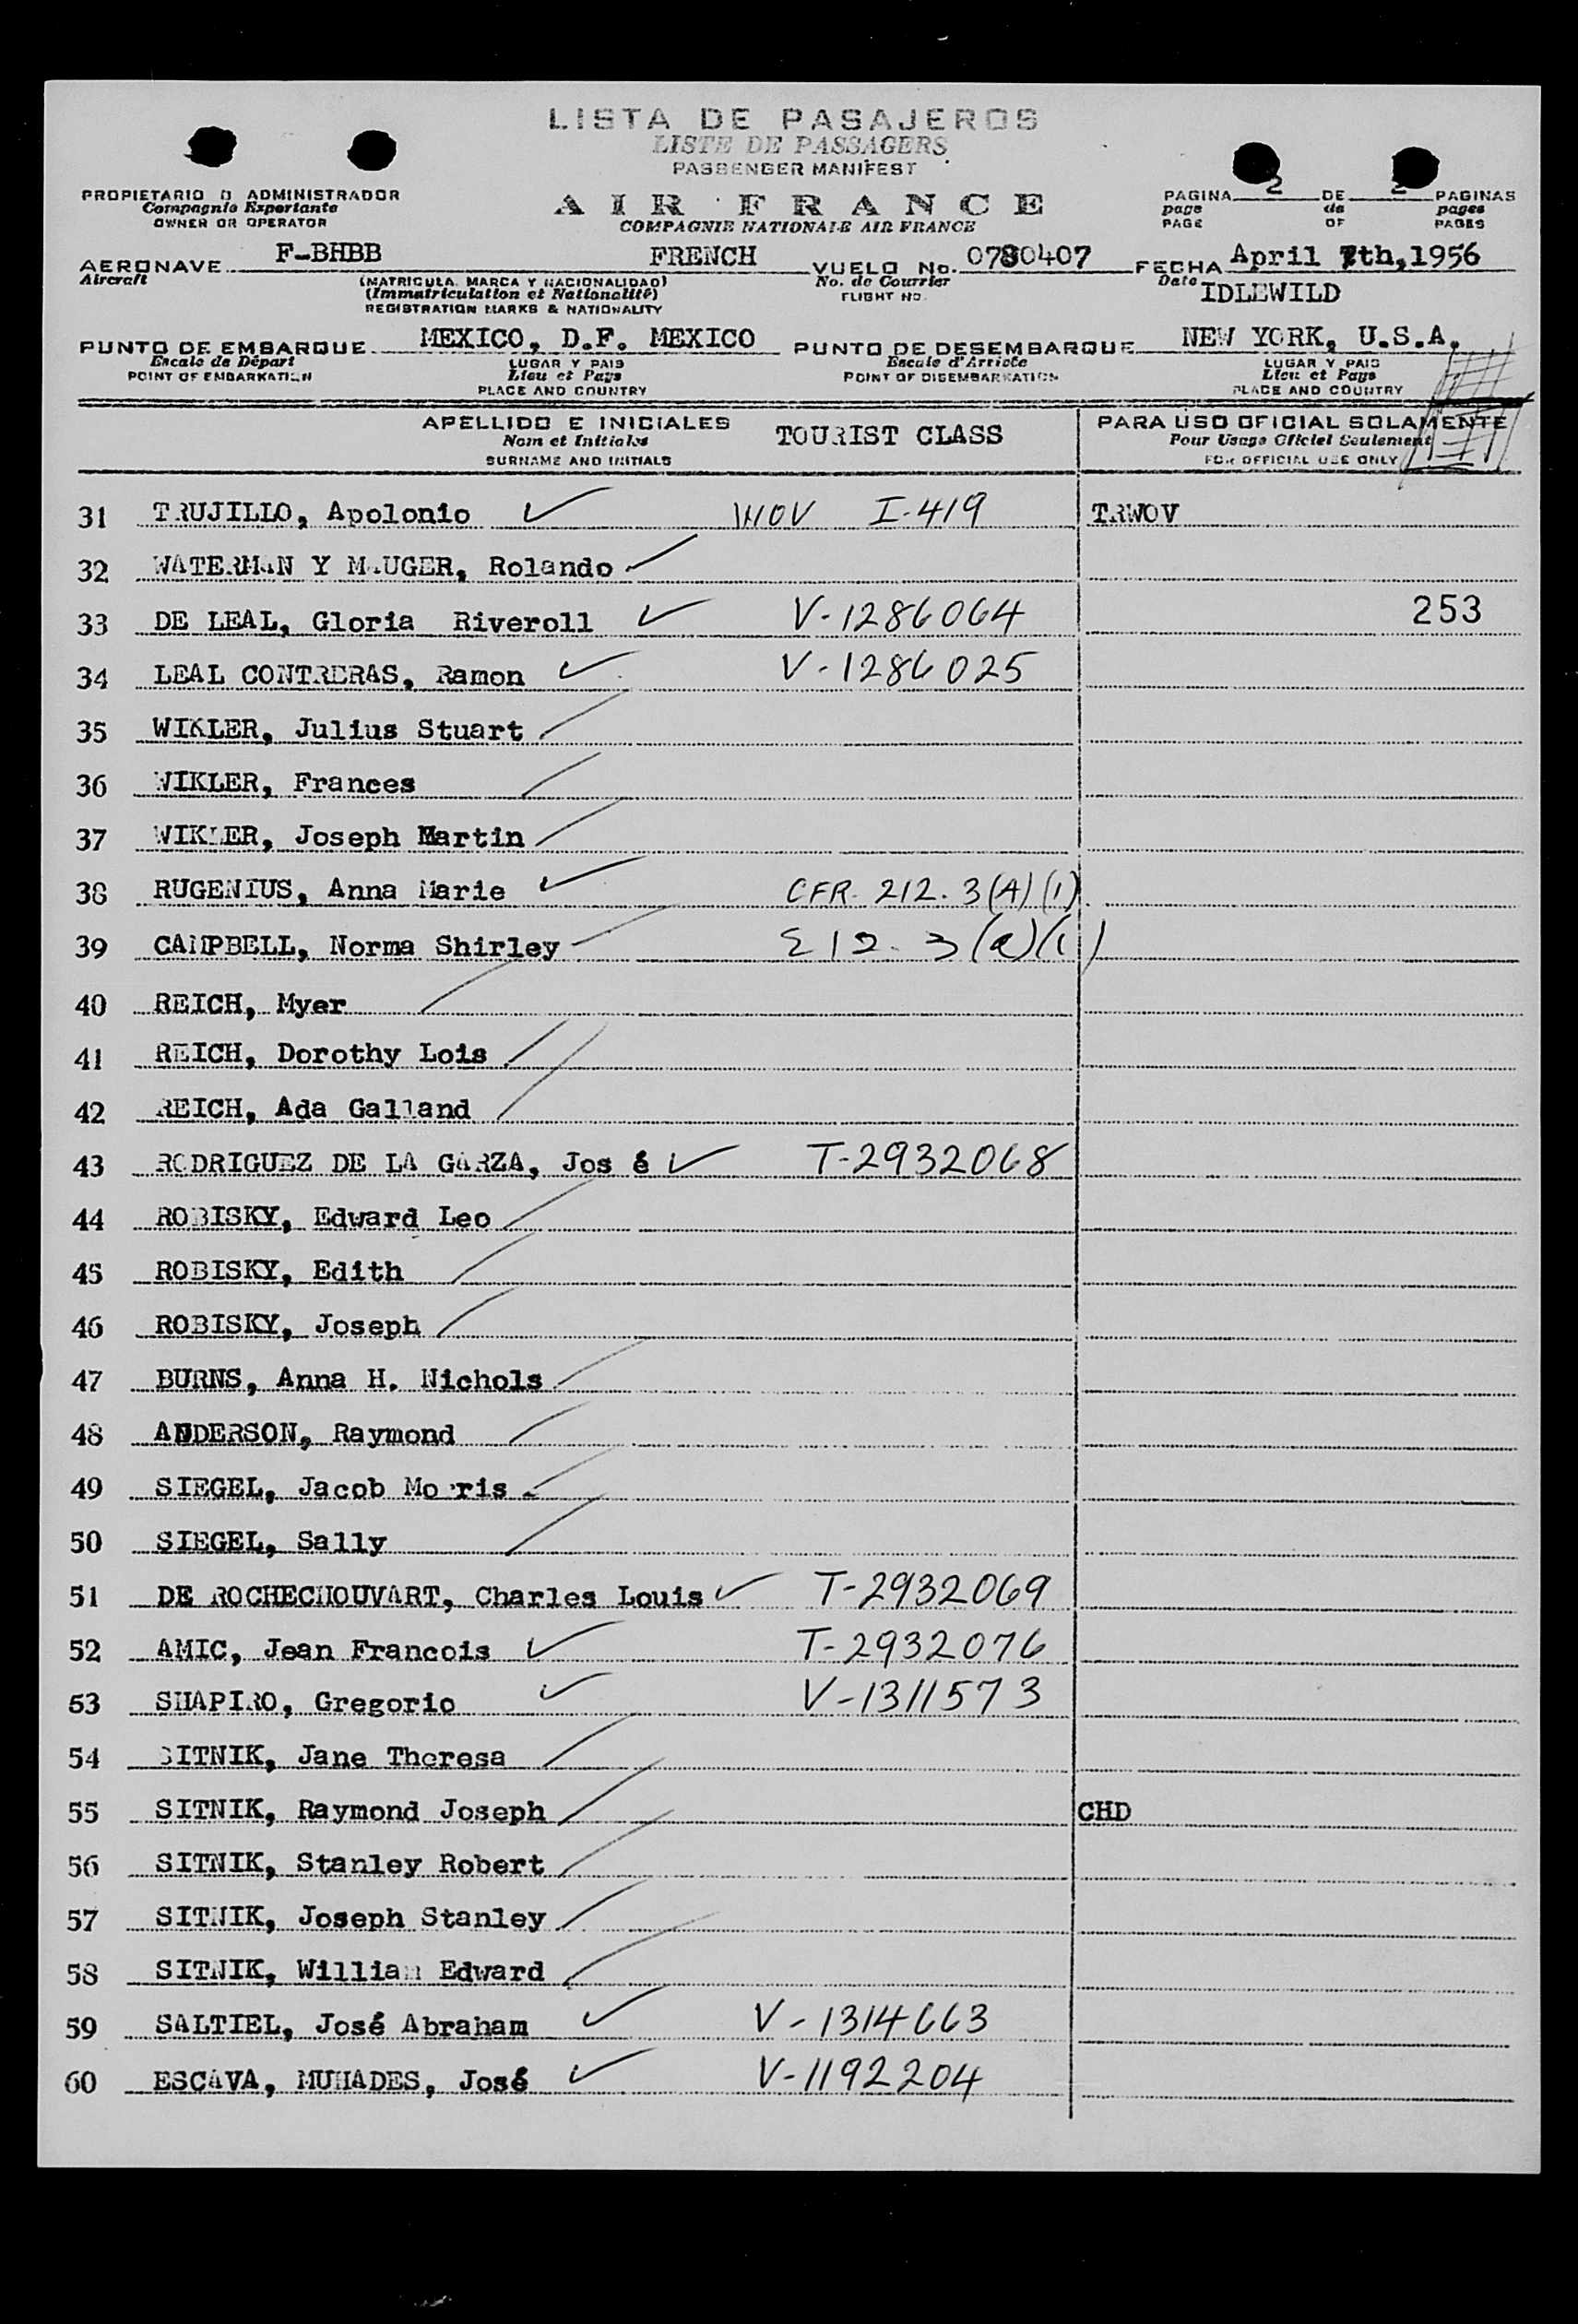 LISTA DE PASAJEROS
LISTE DE PASSAGERS
PASSENGER MANIFEST
PROPIETARIO O ADMINISTRADOR
Compagnie Exportante
OWNER OR OPERATOR
AIR FRANCE
COMPAGNIE NATIONALE AIR FRANCE
PAGINA 2 DE 2 PAGINAS
page de pages
PAGE OF PAGES
AERONAVE F-BHBB FRENCH VUELO No. 0780407 FECHA April 7th, 1956
Aircraft (MATRICULA, MARCA Y NACIONALIDAD) No. de Courrier Date IDLEWILD
(Immatriculation et Nationalité) FLIGHT NO.
REGISTRATION MARKS & NATIONALITY
PUNTO DE EMBARQUE MEXICO, D.F. MEXICO PUNTO DE DESEMBARQUE NEW YORK, U.S.A.
Escale de Départ LUGAR Y PAIS Escale d'Arrivée LUGAR Y PAIS
POINT OF EMBARKATION Lieu et Pays POINT OF DISEMBARKATION Lieu et Pays
PLACE AND COUNTRY PLACE AND COUNTRY
APELLIDO E INICIALES TOURIST CLASS PARA USO OFICIAL SOLAMENTE
Nom et Initiales Pour Usage Officiel Seulement
SURNAME AND INITIALS FOR OFFICIAL USE ONLY
31 TRUJILLO, Apolonio WOV I-419 TRWOV
32 WATERMAN Y MAUGER, Rolando
33 DE LEAL, Gloria Riveroll V-1286064 253
34 LEAL CONTRERAS, Ramon V-1286025
35 WIKLER, Julius Stuart
36 WIKLER, Frances
37 WIKLER, Joseph Martin
38 RUGENIUS, Anna Marie CFR. 212.3(A)(1)
39 CAMPBELL, Norma Shirley 212.3(a)(1)
40 REICH, Myer
41 REICH, Dorothy Lois
42 REICH, Ada Galland
43 RODRIGUEZ DE LA GARZA, Jos é T-2932068
44 ROBISKY, Edward Leo
45 ROBISKY, Edith
46 ROBISKY, Joseph
47 BURNS, Anna H. Nichols
48 ANDERSON, Raymond
49 SIEGEL, Jacob Morris
50 SIEGEL, Sally
51 DE ROCHECHOUVART, Charles Louis T-2932069
52 AMIC, Jean Francois T-2932076
53 SHAPIRO, Gregorio V-1311573
54 SITNIK, Jane Theresa
55 SITNIK, Raymond Joseph CHD
56 SITNIK, Stanley Robert
57 SITNIK, Joseph Stanley
58 SITNIK, William Edward
59 SALTIEL, José Abraham V-1314663
60 ESCAVA, MUHADES, José V-1192204